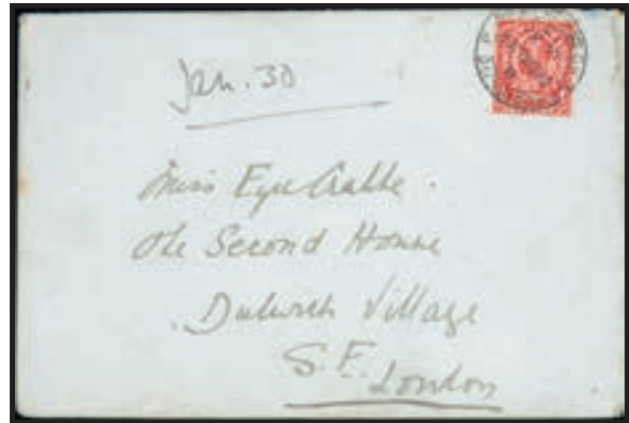 Jan. 30
Miss Eyre Crabbe.
The Second House
Dulwich Village
S.E.
London